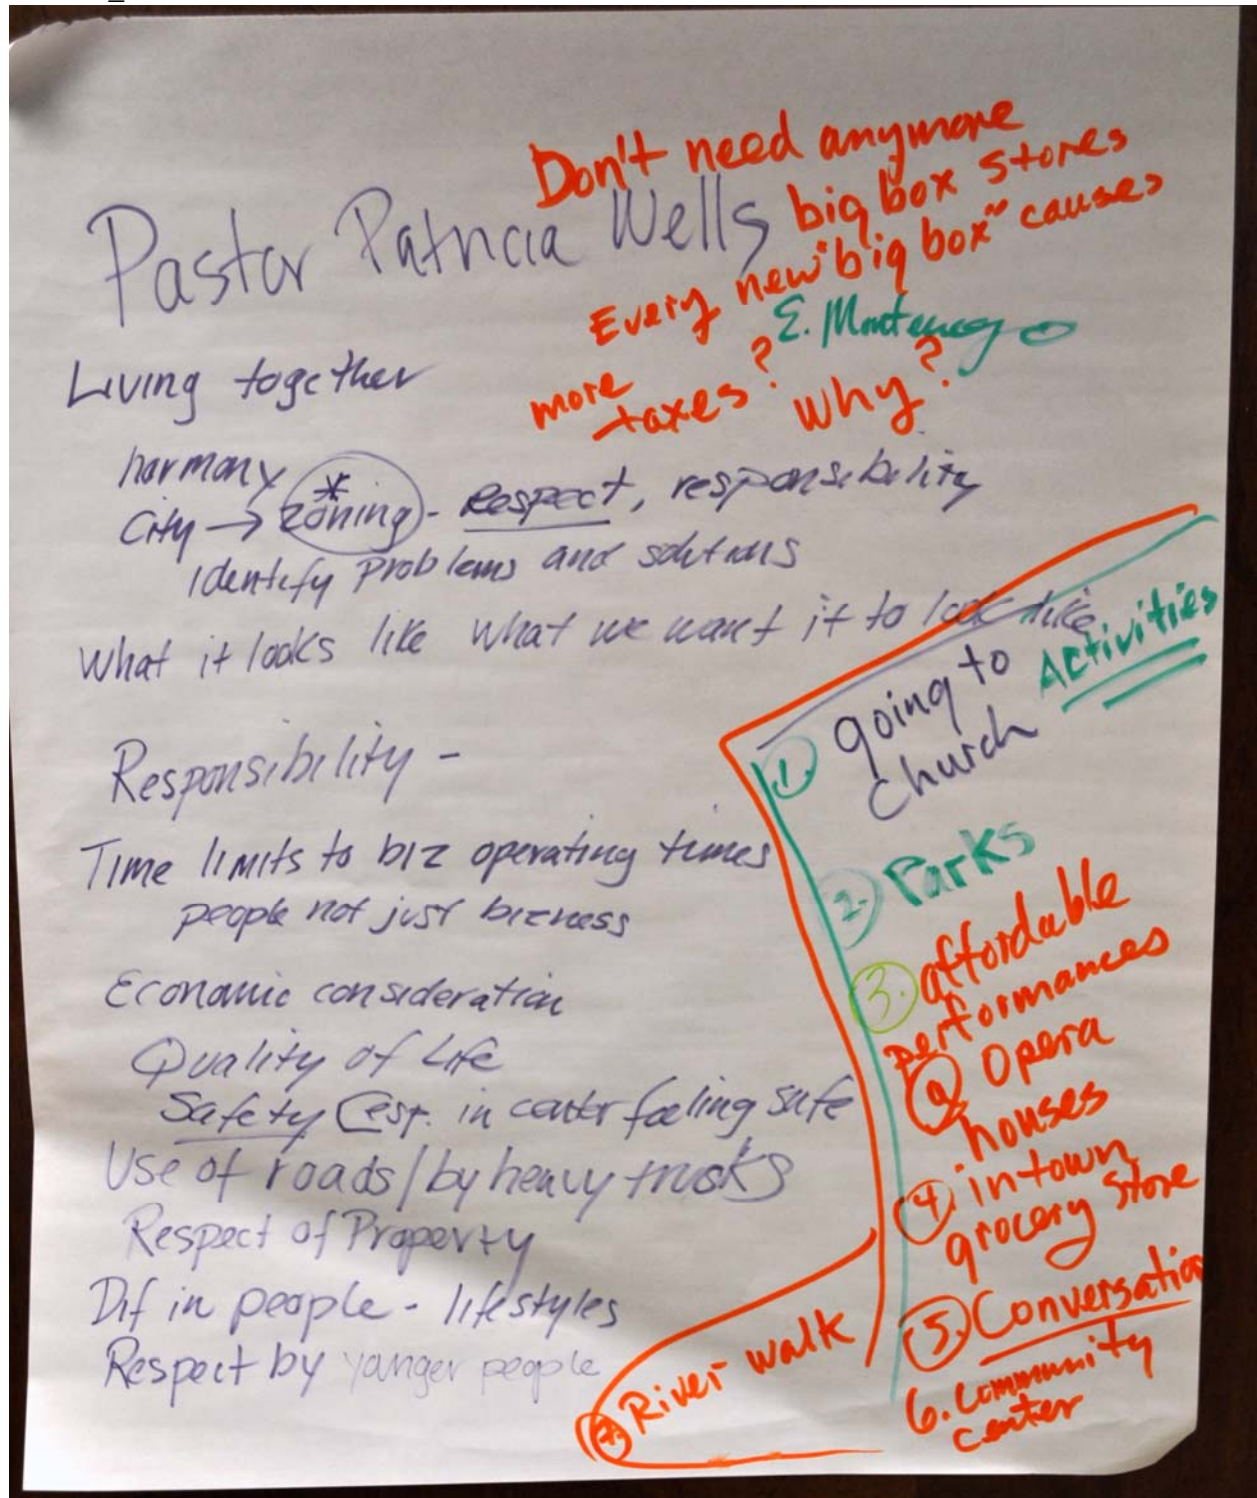 Don't need anymore
big box stores
Every new "big box" causes
more taxes? Why?
E. Montenegro
Pastor Patricia Wells
Living together
harmony
City → zoning * - Respect, responsibility
Identify problems and solutions
What it looks like what we want it to look like
Responsibility -
Time limits to biz operating times
people not just bizness
Economic consideration
Quality of Life
Safety (esp. in center feeling safe
Use of roads / by heavy trucks
Respect of Property
Dif in people - lifestyles
Respect by yanger people
Activities
1. going to
church
2. Parks
3. affordable
performances
a opera
houses
4. in town
grocery store
5. Conversation
6. Community
center
7. River walk